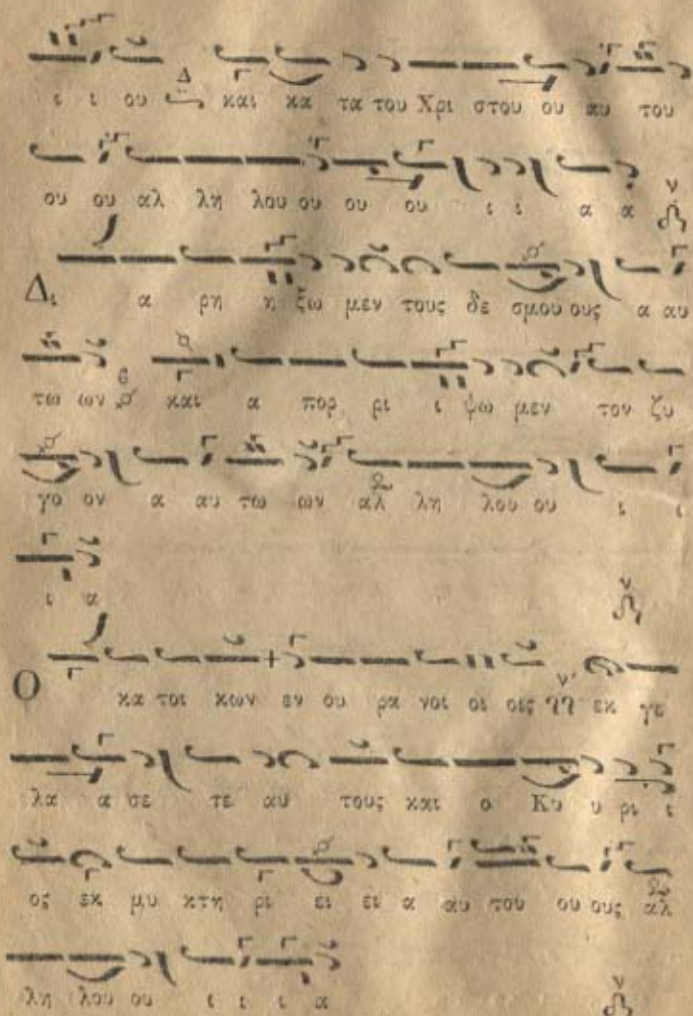 ι ι ου Δ και κα τα του Χρι στου ου αυ του
ου ου αλ λη λου ου ου ου ι ι α α ν
Δι α ρη η ξω μεν τους δε σμου ους α αυ
τω ων β και α πορ ρι ι ψω μεν τον ζυ
γο ον α αυ τω ων αλ λη λου ου ι ι
ι α ν
Ο κα τοι κων εν ου ρα νοι οι οις ν' εκ γε
λα α σε τε αυ τους και ο Κυ υ ρι ι
ος εκ μυ κτη ρι ει ει α αυ του ου ους αλ
λη λου ου ι ι ι α ν